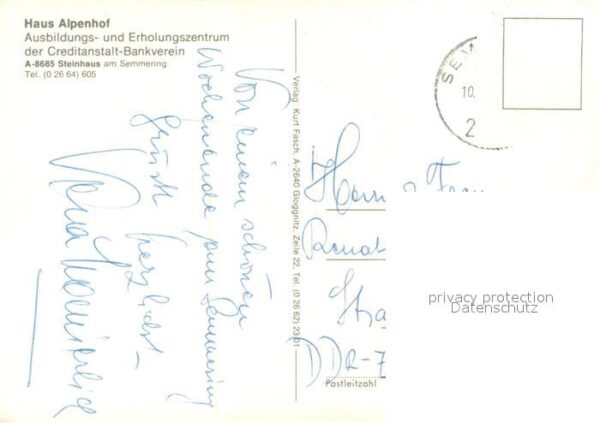 Haus Alpenhof
Ausbildungs- und Erholungszentrum
der Creditanstalt-Bankverein
A-8685 Steinhaus am Semmering
Tel. (0 26 64) 605
Von einem schönen
Wochenende am Semmering
grüßt herzlichst
Verlag Kurt Fasch, A-2640 Gloggnitz, Zeile 22, Tel. (0 26 62) 23 01
SEM
10.
2
Herrn
Renat
Stra
DDR-7
Postleitzahl
privacy protection
Datenschutz